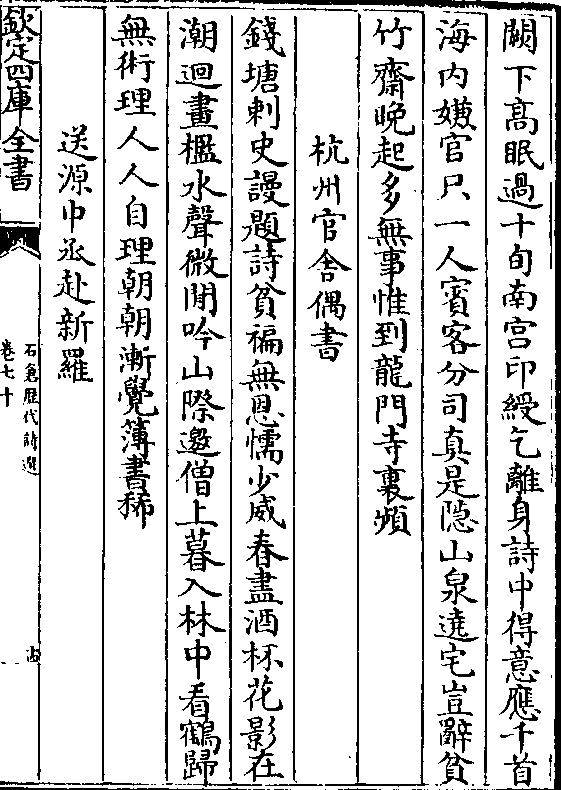 闕下髙眠過十旬南宫印綬乞離身詩中得意應千首
海内嫌官只一人賓客分司真是隐山泉遶宅豈辭貧
竹齋晚起多無事惟到龍門寺裏頻
杭州官舍偶書
錢塘刺史謾題詩貧褊無恩懦少威春盡酒杯花影在
潮迴畫檻水聲微閒吟山際邀僧上暮入林中看鶴歸
無術理人人自理朝朝漸覺薄書稀
送源中丞赴新羅
欽定四庫全書
石倉歷代詩選
卷七十